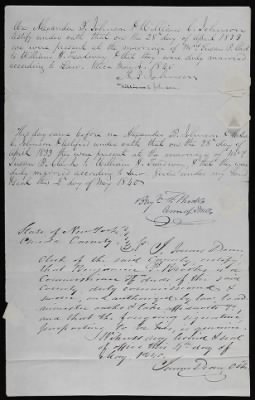 We Alexander D. Johnson & William C. Johnson
testify under oath that on the 28th day of April 1833
we were present at the marriage of Mrs Susan P. Clark
to William H. & that they were duly married
according to Law. Utica May 2d 1840
A. D. Johnson
William C. Johnson
This day came before me Alexander D. Johnson & William
C. Johnson & testified under oath that on the 28th day of
April 1833 they were present at the marriage of Mrs
Susan P. Clark to William H. & that they were
duly married according to Law. Given under my hand
this 2d day of May 1840
Benj. F.
Comr of Deeds
State of New York
Oneida County ss I James Dean
Clerk of the said County, certify
that Benjamin F. is a
Commissioner of Deeds of the said
County duly commissioned &
sworn, and authorized by law to ad
minister oaths & take affidavits &c
and that the foregoing signature
purporting to be his, is genuine.
Witness my hand & seal
of office this 4th day of
May, 1840.
James Dean Clk